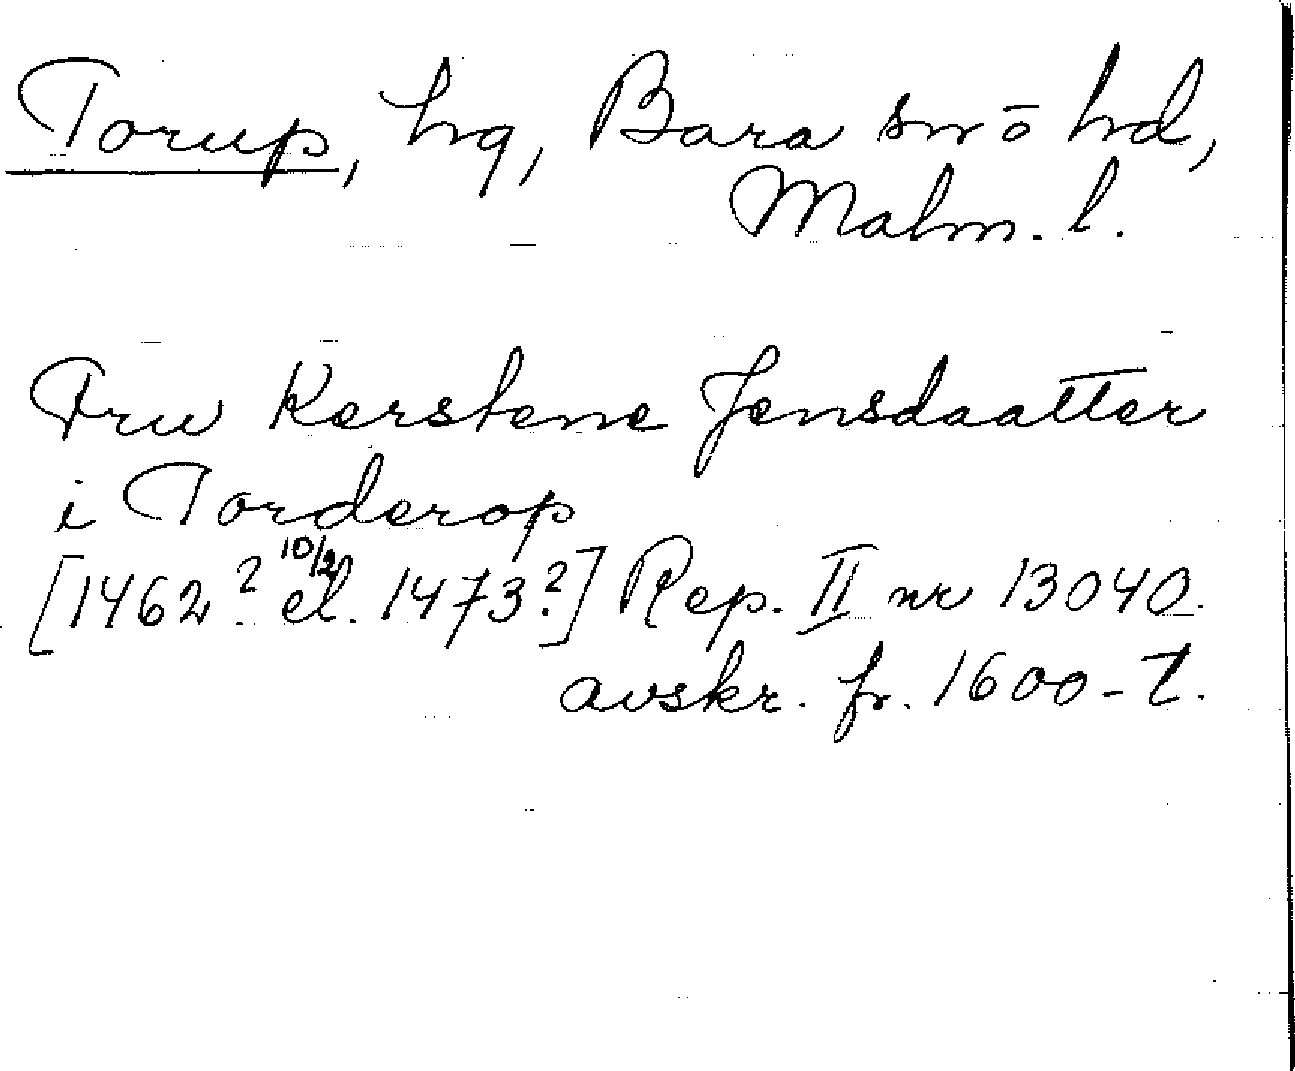 Torup, hg, Bara sn ō hd,
Malm. l.
Fru Kerstene Jensdaatter
i Torderop
10/2
[1462? el. 1473?] Rep. II nr 13040.
avskr. fr. 1600-t.